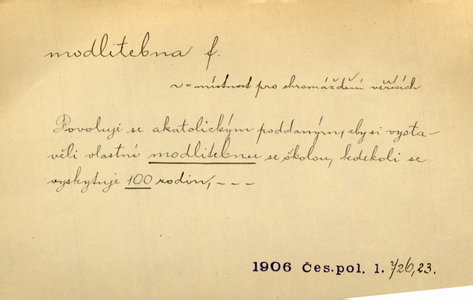 modlitebna f.
v = místnost pro shromáždění věřících
Povoluji se akatolickým poddaným, aby si vysta-
věli vlastní modlitebnu se školou, kdekoli se
vyskytuje 100 rodin, - - -
1906 Čes. pol. 1. 726, 23.